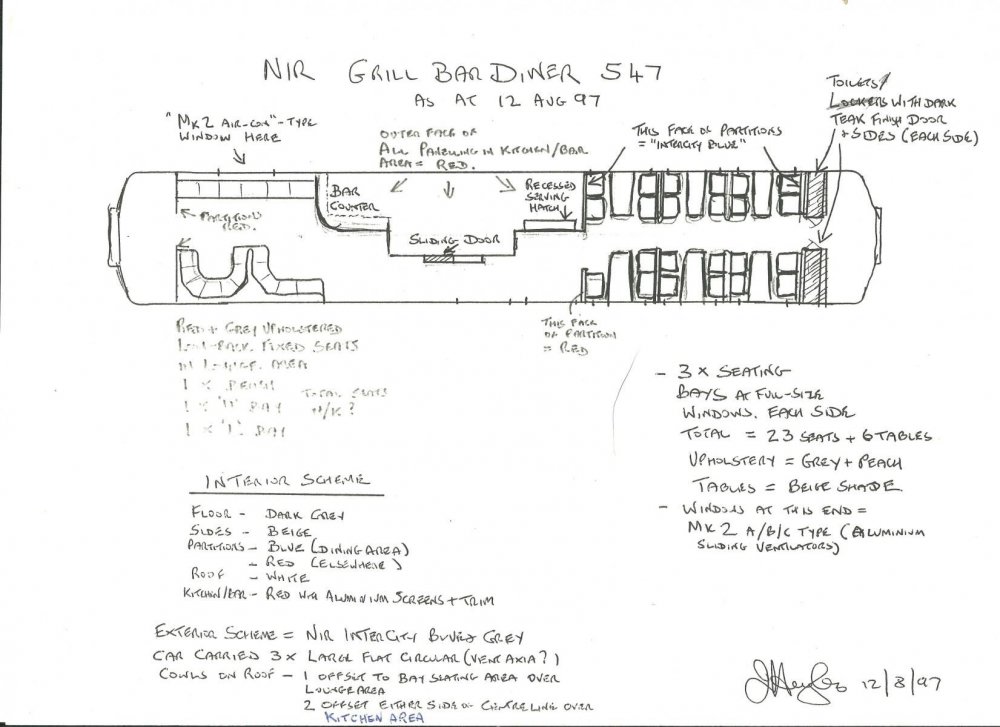 NIR GRILL BAR DINER 547
AS AT 12 AUG 97
"MK2 AIR-CON"-TYPE
WINDOW HERE
OUTER FACE OF
ALL PANELLING IN KITCHEN/BAR
AREA = RED.
THIS FACE OF PARTITIONS
= "INTERCITY BLUE"
TOILETS/
LOCKERS WITH DARK
TEAK FINISH DOOR
+ SIDES (EACH SIDE)
PARTITION
RED.
BAR
COUNTER
SLIDING DOOR
RECESSED
SERVING
HATCH
THIS FACE
OF PARTITION
= RED
RED + GREY UPHOLSTERED
LOW-BACK FIXED SEATS
IN LOUNGE AREA
1 X BENCH
1 X "U" BAY
1 X "L" BAY
TOTAL SEATS
N/K?
- 3 X SEATING
BAYS AT FULL-SIZE
WINDOWS, EACH SIDE
TOTAL = 23 SEATS + 6 TABLES
UPHOLSTERY = GREY + PEACH
TABLES = BEIGE SHADE.
- WINDOWS AT THIS END =
MK2 A/B/C TYPE (ALUMINIUM
SLIDING VENTILATORS)
INTERIOR SCHEME
FLOOR - DARK GREY
SIDES - BEIGE
PARTITIONS - BLUE (DINING AREA)
- RED (ELSEWHERE)
ROOF - WHITE
KITCHEN/BAR - RED WITH ALUMINIUM SCREENS + TRIM
EXTERIOR SCHEME = NIR INTERCITY BLUE + GREY
CAR CARRIED 3 X LARGE FLAT CIRCULAR (VENT AXIA?)
COWLS ON ROOF - 1 OFFSET TO BAY SEATING AREA OVER
LOUNGE AREA
2 OFFSET EITHER SIDE OF CENTRELINE OVER
KITCHEN AREA
12/8/97